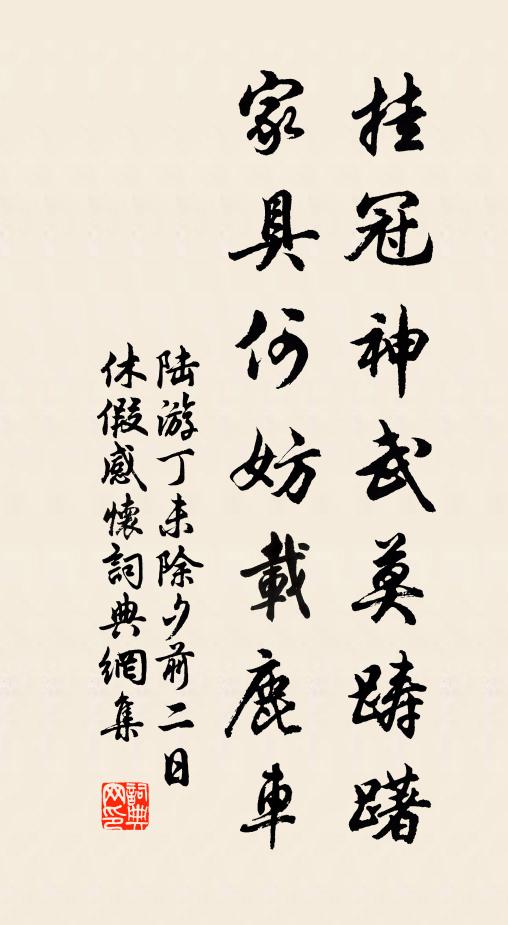 挂冠神武莫踌躇
家具何妨載鹿車
陆游丁未除夕前二日
休假感懷詞典網集
詞典
网印